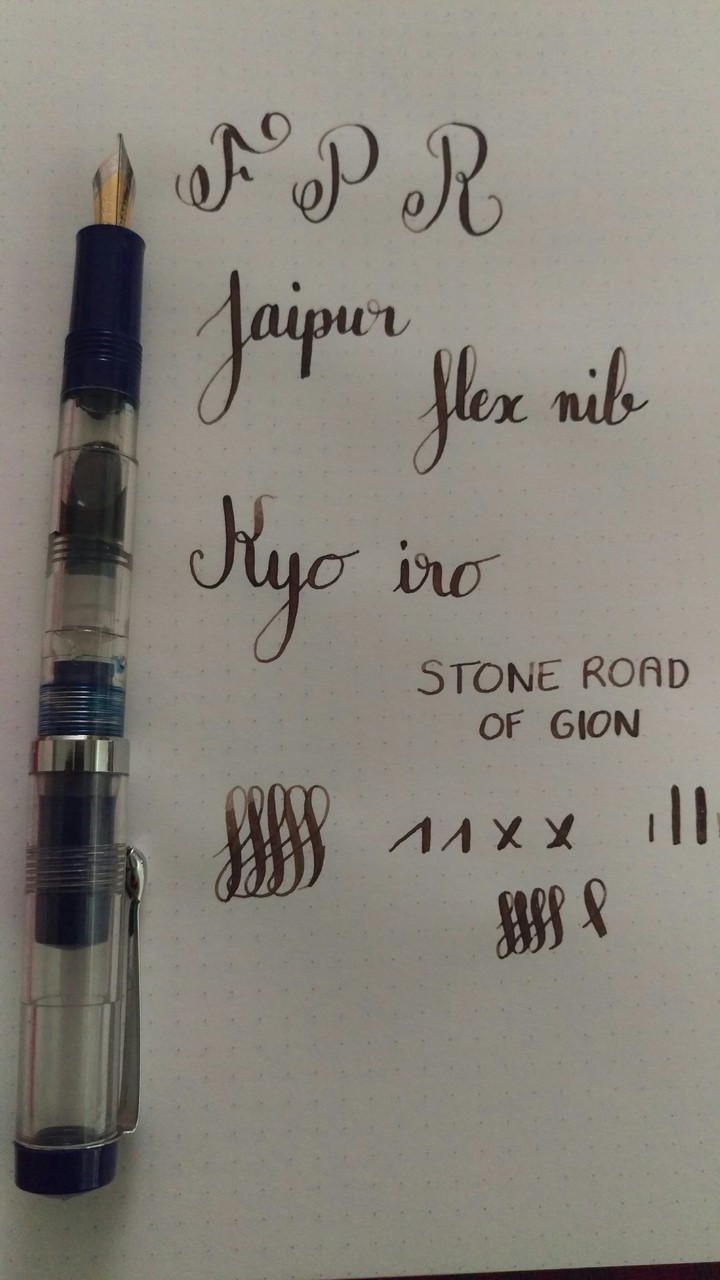 F P R
Jaipur
flex nib
Kyo iro
STONE ROAD
OF GION
11xx